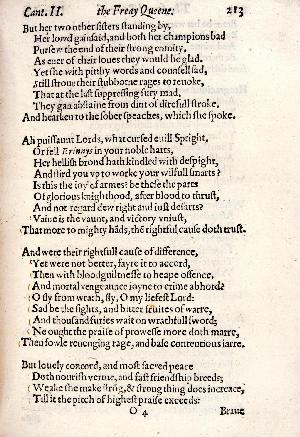 Cant. II. the Faery Queene. 213
But her two other sisters standing by,
Her lowd gainsaid, and both her champions bad
Pursew the end of their strong enmity,
As euer of their loues they would be glad.
Yet she with pitthy words and counsell sad,
Still stroue their stubborne rages to reuoke,
That at the last suppressing fury mad,
They gan abstaine from dint of direfull stroke,
And hearken to the sober speaches, which she spoke.
Ah puissaunt Lords, what cursed euill Spright,
Or fell Erinnys in your noble harts,
Her hellish brond hath kindled with despight,
And stird you vp to worke your wilfull smarts?
Is this the ioy of armes? be these the parts
Of glorious knighthood, after blood to thrust,
And not regard dew right and iust desarts?
Vaine is the vaunt, and victory vniust,
That more to mighty hāds, the rightful cause doth trust.
And were their rightfull cause of difference,
Yet were not better, fayre it to accord,
Then with bloodguiltnesse to heape offence,
And mortal vengeaunce ioyne to crime abhord?
O fly from wrath, fly, O my liefest Lord:
Sad be the sights, and bitter fruites of warre,
And thousand furies wait on wrathfull sword;
Ne ought the praise of prowesse more doth marre,
Then fowle reuenging rage, and base contentious iarre.
But louely concord, and most sacred peare
Doth nourish vertue, and fast friendship breeds;
Weake she makes strōg, & strong thing does increace,
Till it the pitch of highest praise exceeds:
O 4 Braue